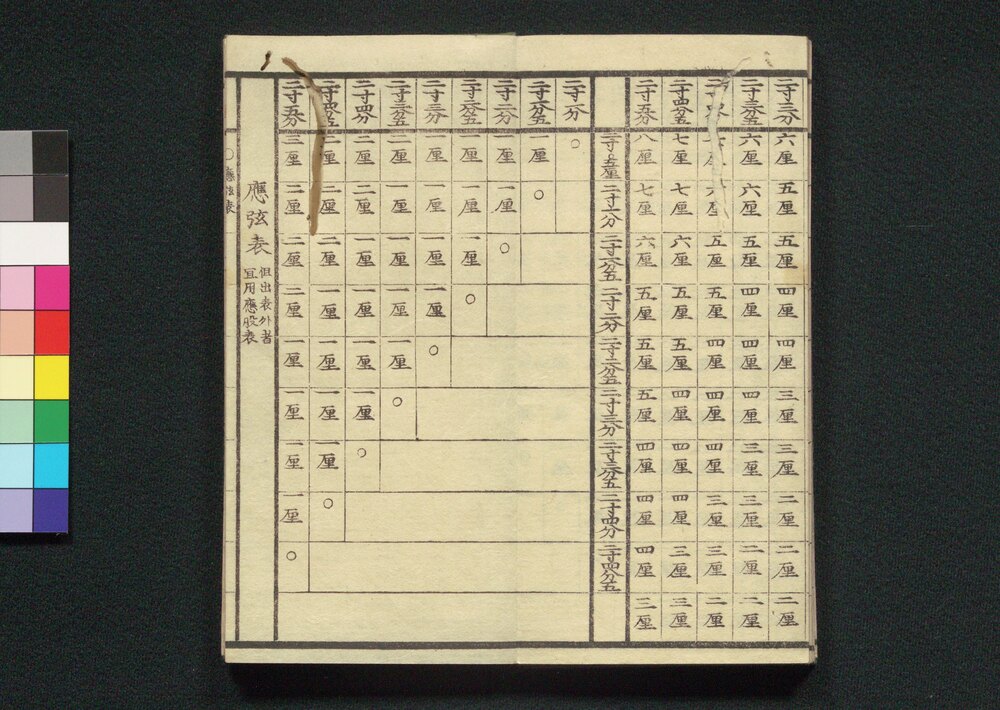 二寸三分 六厘 五厘 五厘 四厘 四厘 三厘 三厘 二厘 二厘 二厘
二寸三分五 六厘 六厘 五厘 四厘 四厘 四厘 三厘 三厘 二厘 二厘
厘 六厘 五厘 五厘 四厘 四厘 四厘 三厘 三厘 二厘
二寸四分五 七厘 七厘 六厘 五厘 五厘 四厘 四厘 四厘 三厘 三厘
二寸五分 八厘 七厘 六厘 五厘 五厘 五厘 四厘 四厘 四厘 三厘
二寸〇五厘 二寸一分 二寸一分五 二寸二分 二寸二分五 二寸三分 二寸三分五 二寸四分 二寸四分五
二寸一分 ○
二寸一分五 一厘 ○
二寸二分 一厘 一厘 ○
二寸二分五 一厘 一厘 一厘 ○
二寸三分 一厘 一厘 一厘 一厘 ○
二寸三分五 二厘 一厘 一厘 一厘 一厘 ○
二寸四分 二厘 二厘 一厘 一厘 一厘 一厘 ○
二寸四分五 二厘 二厘 二厘 一厘 一厘 一厘 一厘 ○
二寸五分 三厘 二厘 二厘 二厘 一厘 一厘 一厘 一厘 ○
應弦表
但出表外者
宜用應股表
○應弦表